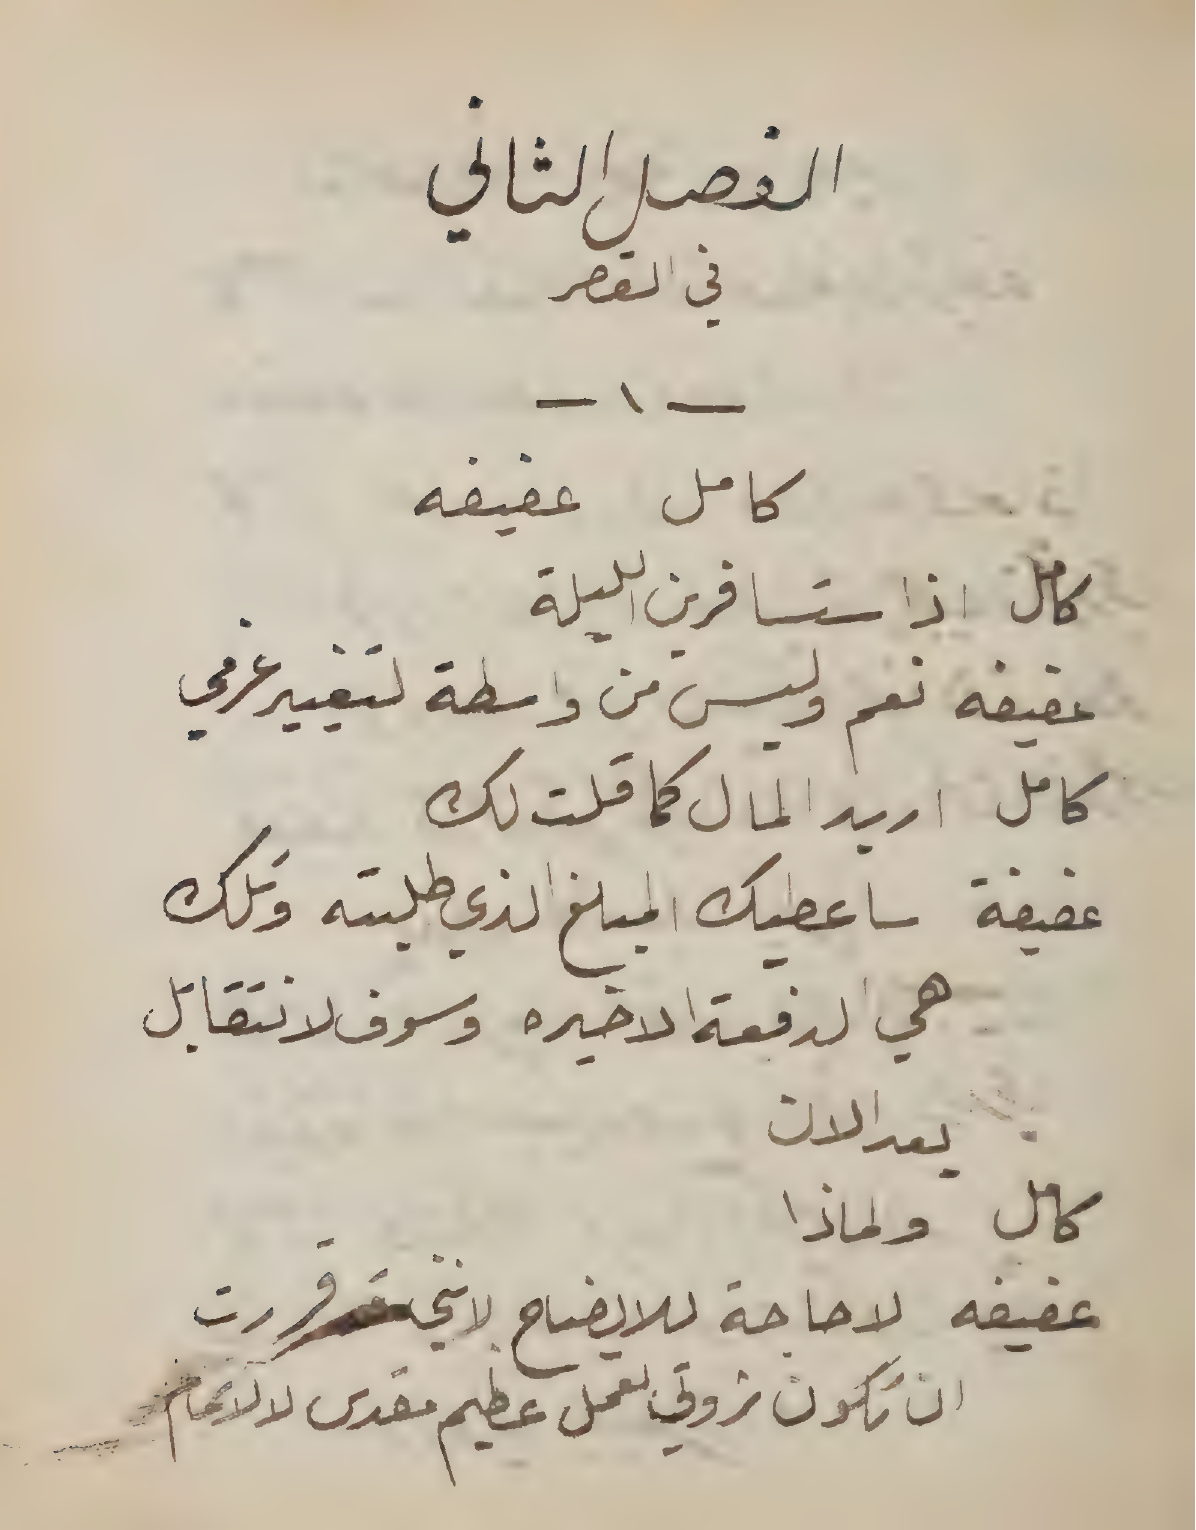 الفصل الثاني
في القصر
— ١ —
كامل عفيفه
كامل اذا ستسافرين الليلة
عفيفه نعم وليس من واسطة لتغيير عزمي
كامل اريد المال كما قلت لك
عفيفة ساعطيك المبلغ الذي طلبته وتلك
هي الدفعة الاخيره وسوف لا نتقابل
بعد الان
كامل ولماذا
عفيفه لا حاجة للايضاح لانني قد قررت
ان تكون ثروتي لعمل عظيم مقدس لا